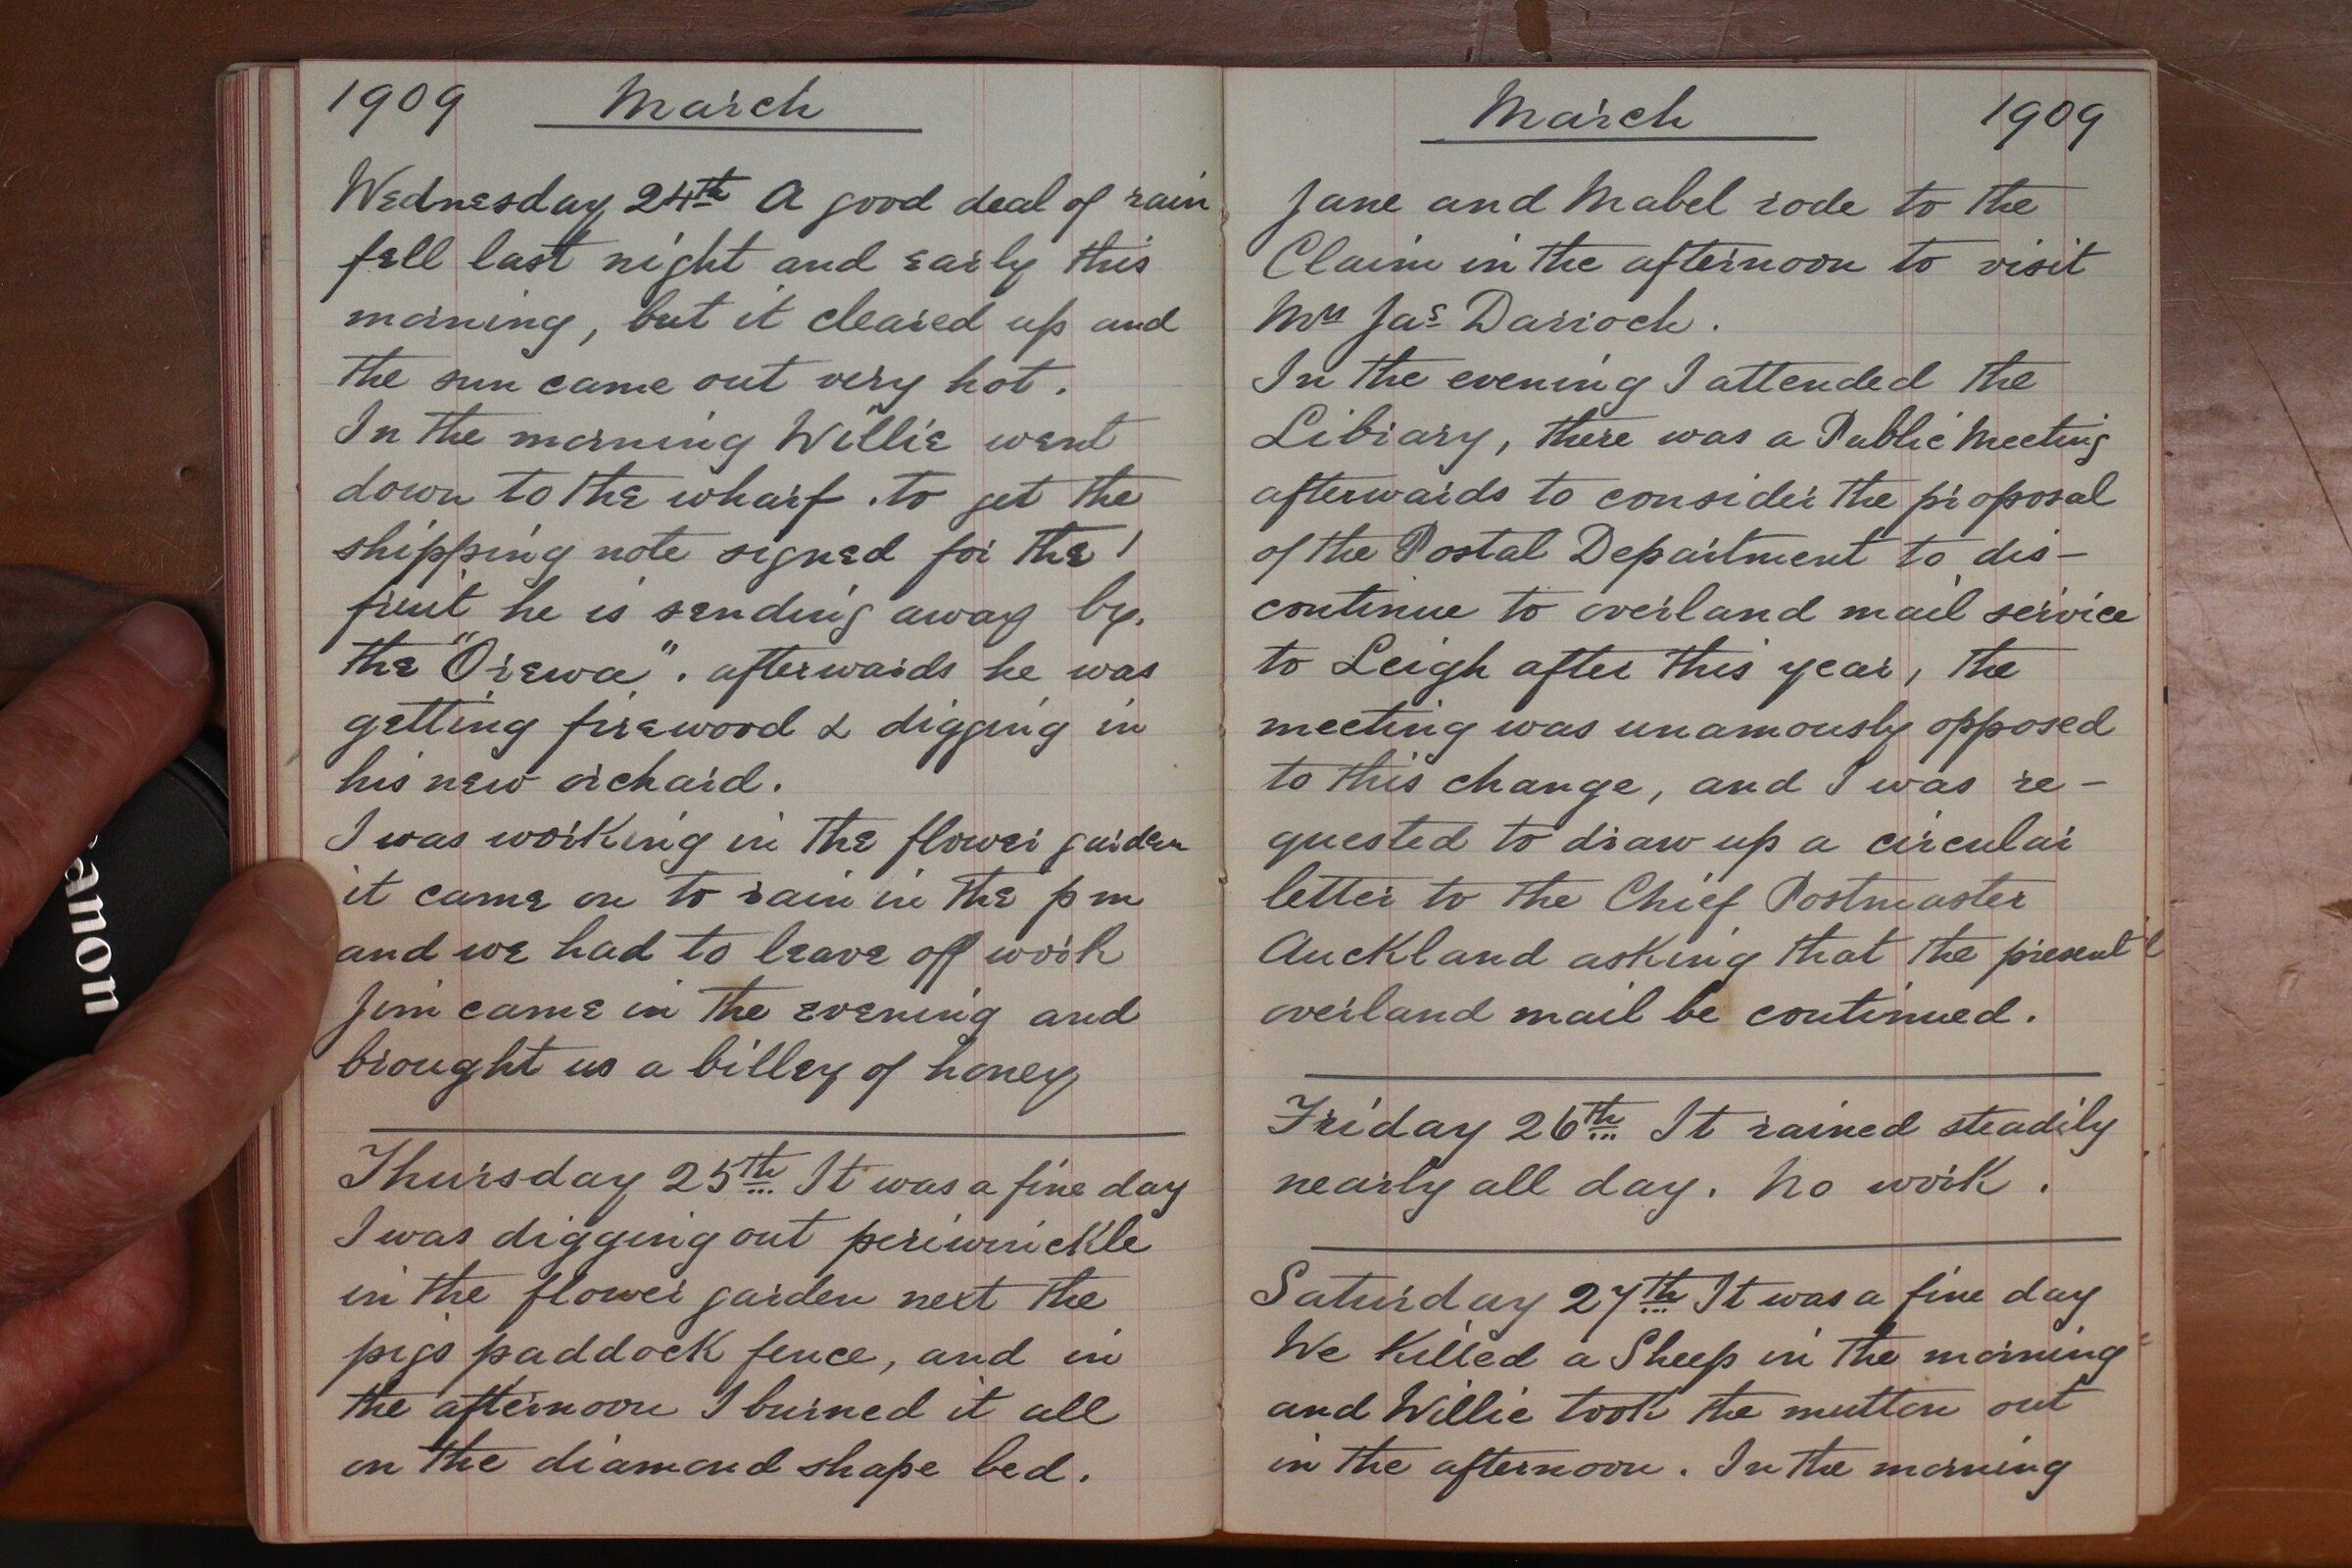 1909 March
Wednesday 24th A good deal of rain
fell last night and early this
morning, but it cleared up and
the sun came out very hot.
In the morning Willie went
down to the wharf . to get the
shipping note signed for the
fruit he is sending away by.
the "Orewa". afterwards he was
getting firewood & digging in
his new orchard.
I was working in the flower garden
it came on to rain in the pm
and we had to leave off work
Jim came in the evening and
brought us a billey of honey
Thursday 25th It was a fine day
I was digging out periwinckle
in the flower garden next the
pigs paddock fence, and in
the afternoon I burned it all
on the diamond shape bed.
March 1909
Jane and Mabel rode to the
Claim in the afternoon to visit
Mrs Jas Darroch.
In the evening I attended the
Library, there was a Public Meeting
afterwards to consider the proposal
of the Postal Department to dis-
continue to overland mail service
to Leigh after this year, the
meeting was unamously opposed
to this change, and I was re-
quested to draw up a circular
letter to the Chief Postmaster
Auckland asking that the present
overland mail be continued.
Friday 26th It rained steadily
nearly all day. No work.
Saturday 27th It was a fine day
We Killed a Sheep in the morning
and Willie took the mutton out
in the afternoon. In the morning